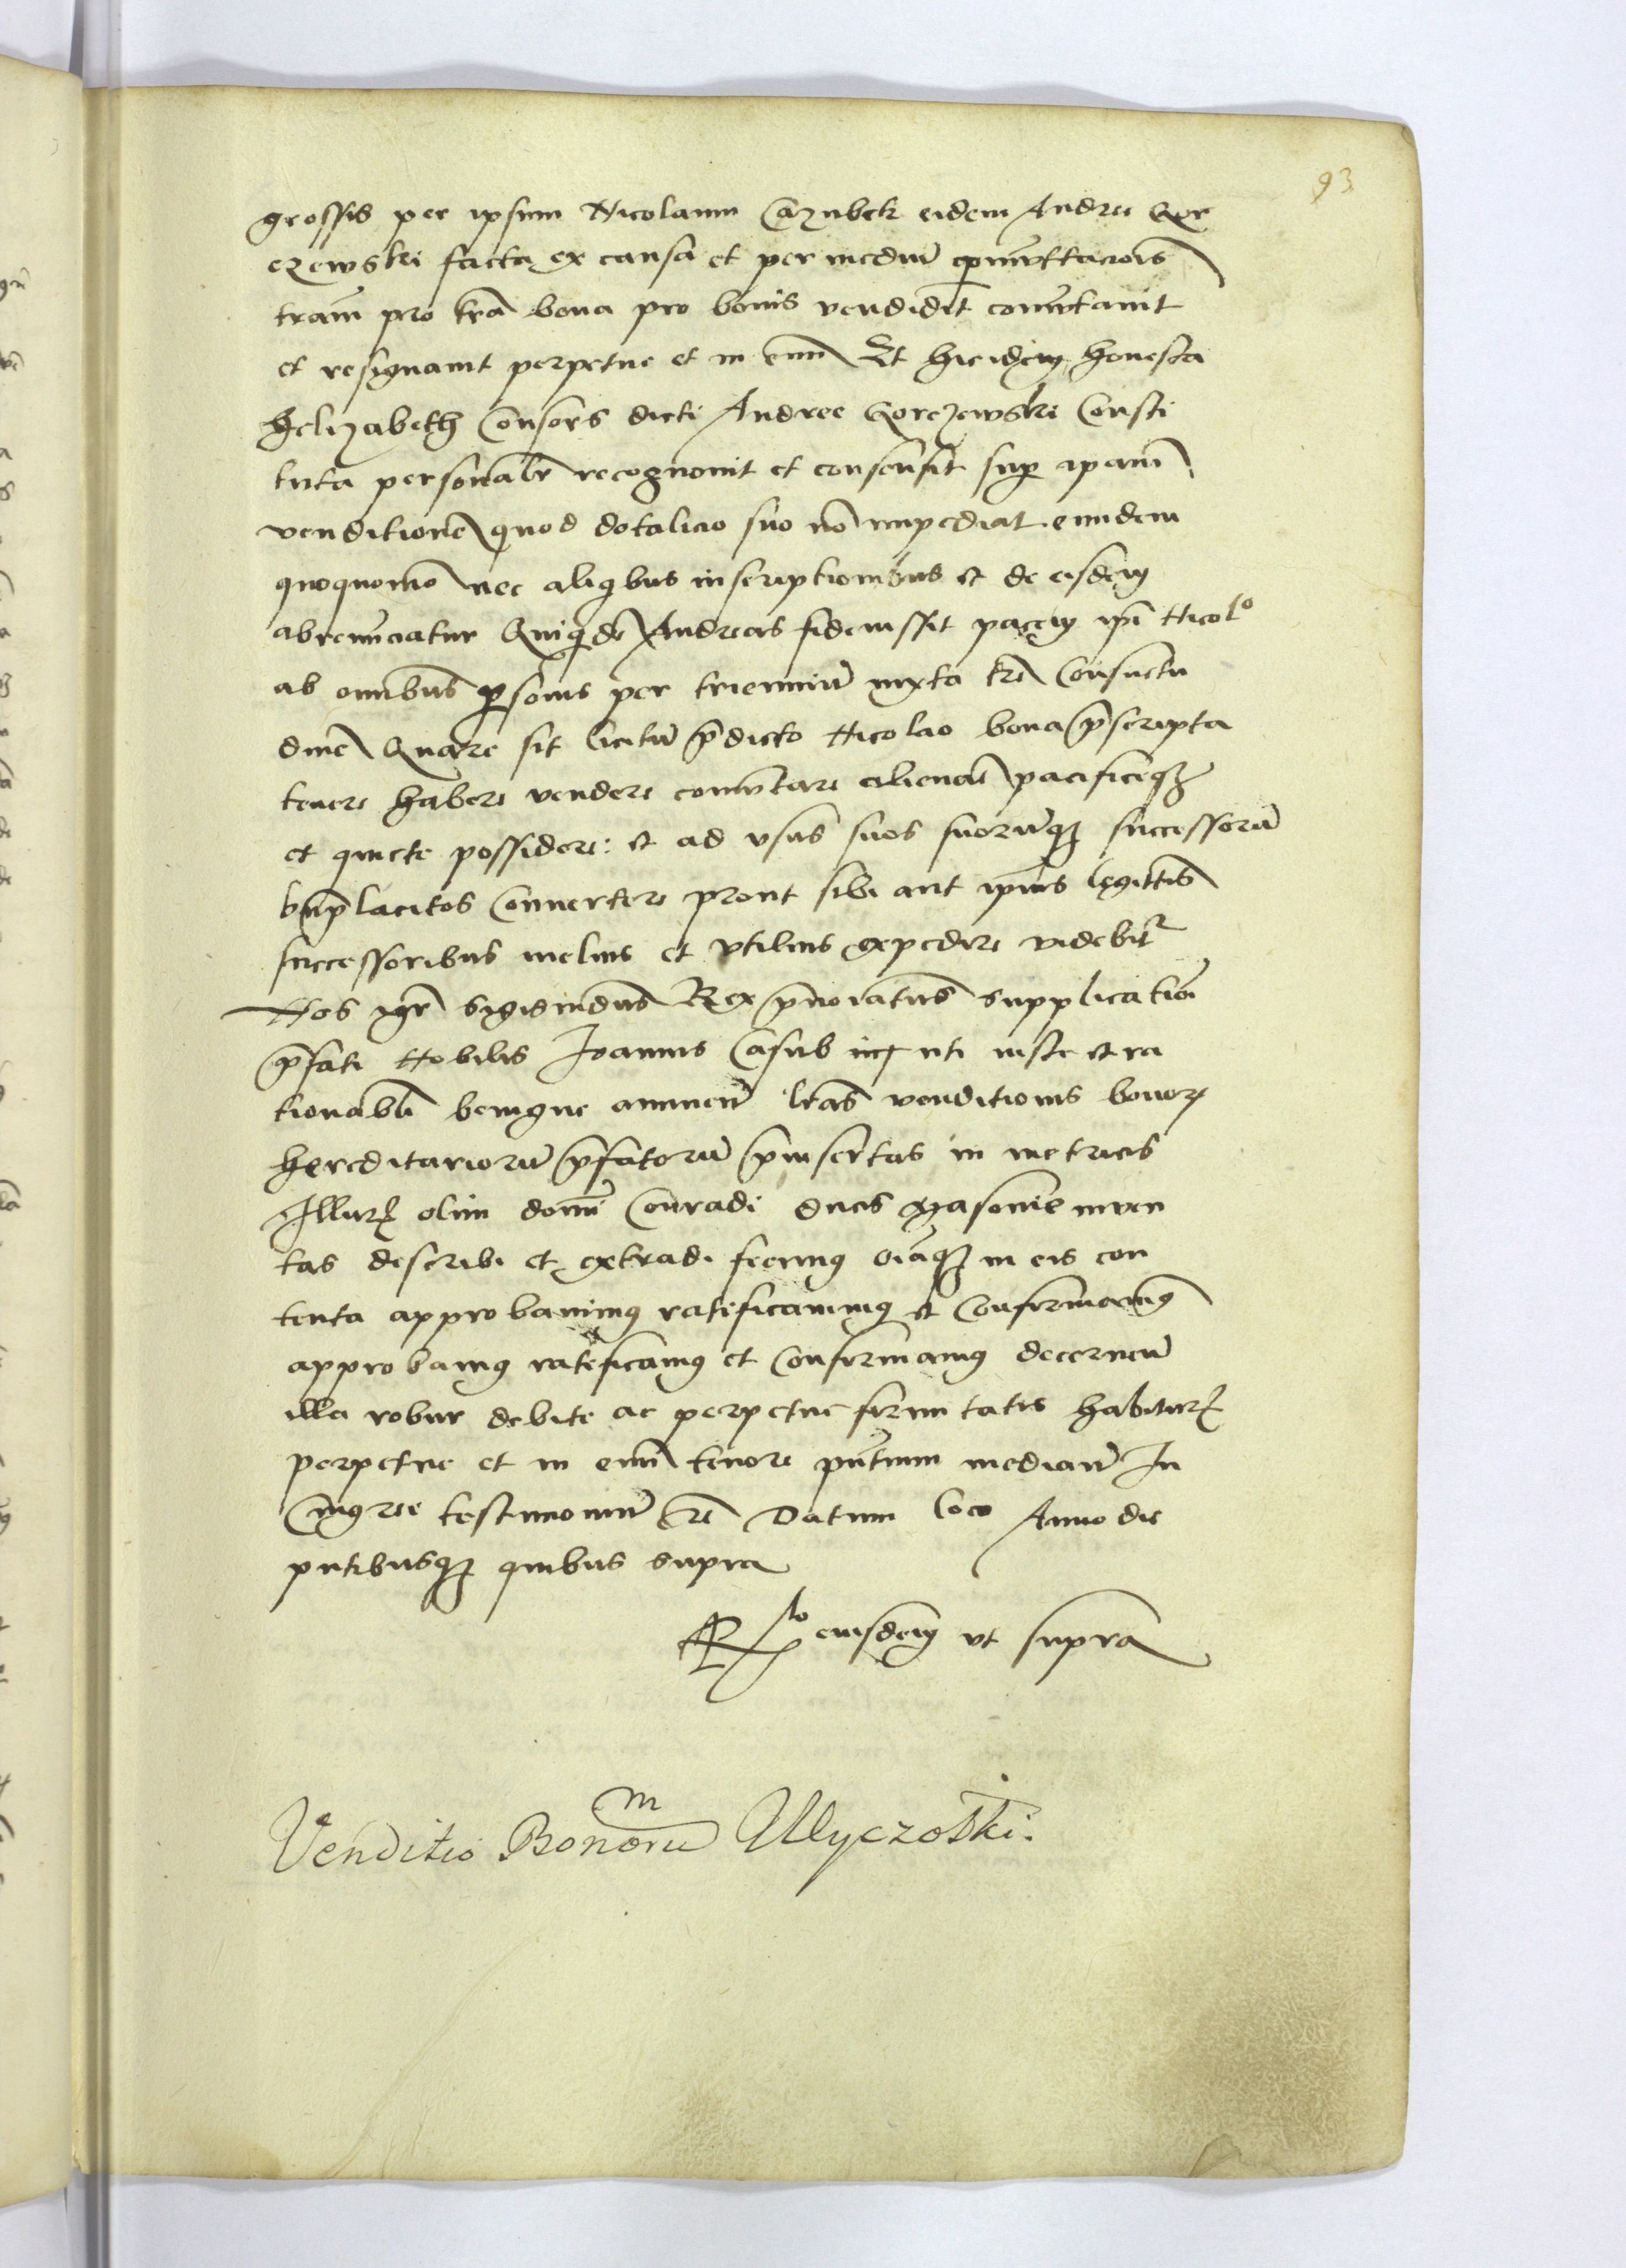 93
grossis per ipsum Nicolaum Cazubek eidem Andree Gor
czewski facta ex causa et per mediū ꝑmuttacōis
trām pro trā bona pro bonis vendidit comutavit
et resignavit perpetue et in evm̄ Et hic idem honesta
Helizabeth Consors dicti Andree Gorczewski Consti
tuta personalr̄ recognovit et consensit sup ipam̄
venditionē quod dotalicio suo nō impediat eundem
quoquomō nec aliqbus inscriptionibus et de eisdem
abrenūciatur Quiqdē Andreas fideiussit pacem ipī Nicolo
ab omnibus ꝑsonis per trienniū iuxta trē Consuetu
dinē Quare sit licitū p̄dicto Nicolao bona p̄scripta
tenere habere vendere comutare alienare pacificeqꝫ
et quiete possidere: et ad vsus suos suorūqꝫ successorū
bn̄placitos Convertere prout sibi aut ipius legittis
successoribus melius et vtilius expedire videbitr
Nos igr̄ Sigismdus Rex p̄noiatus supplicationi
p̄fati Nobilis Joannis Casub uti iuste et ra
tionabli benigne annuen̄ lr̄as venditionis bonorꝫ
hereditariorū p̄fatorū p̄insertas in metricis
Illurꝫ olim domī Conradi ducis Masovie inven
tas describi et extradi fecimꝰ oīaqꝫ in eis con
tenta approbavimꝰ ratificavimꝰ et Confirmavimꝰ
approbamꝰ ratificamꝰ et Confirmamꝰ decernen̄
illa robur debite ac perpetue firmitatis habiturꝫ
perpetue et in evm̄ tenore pn̄tium median̄ In
cuiꝰ rei testimoniū etc Datum loco Anno die
pntibusqꝫ quibus supra
Rlo eiusdem vt supra
Venditio Bonorum Ulyczoski.